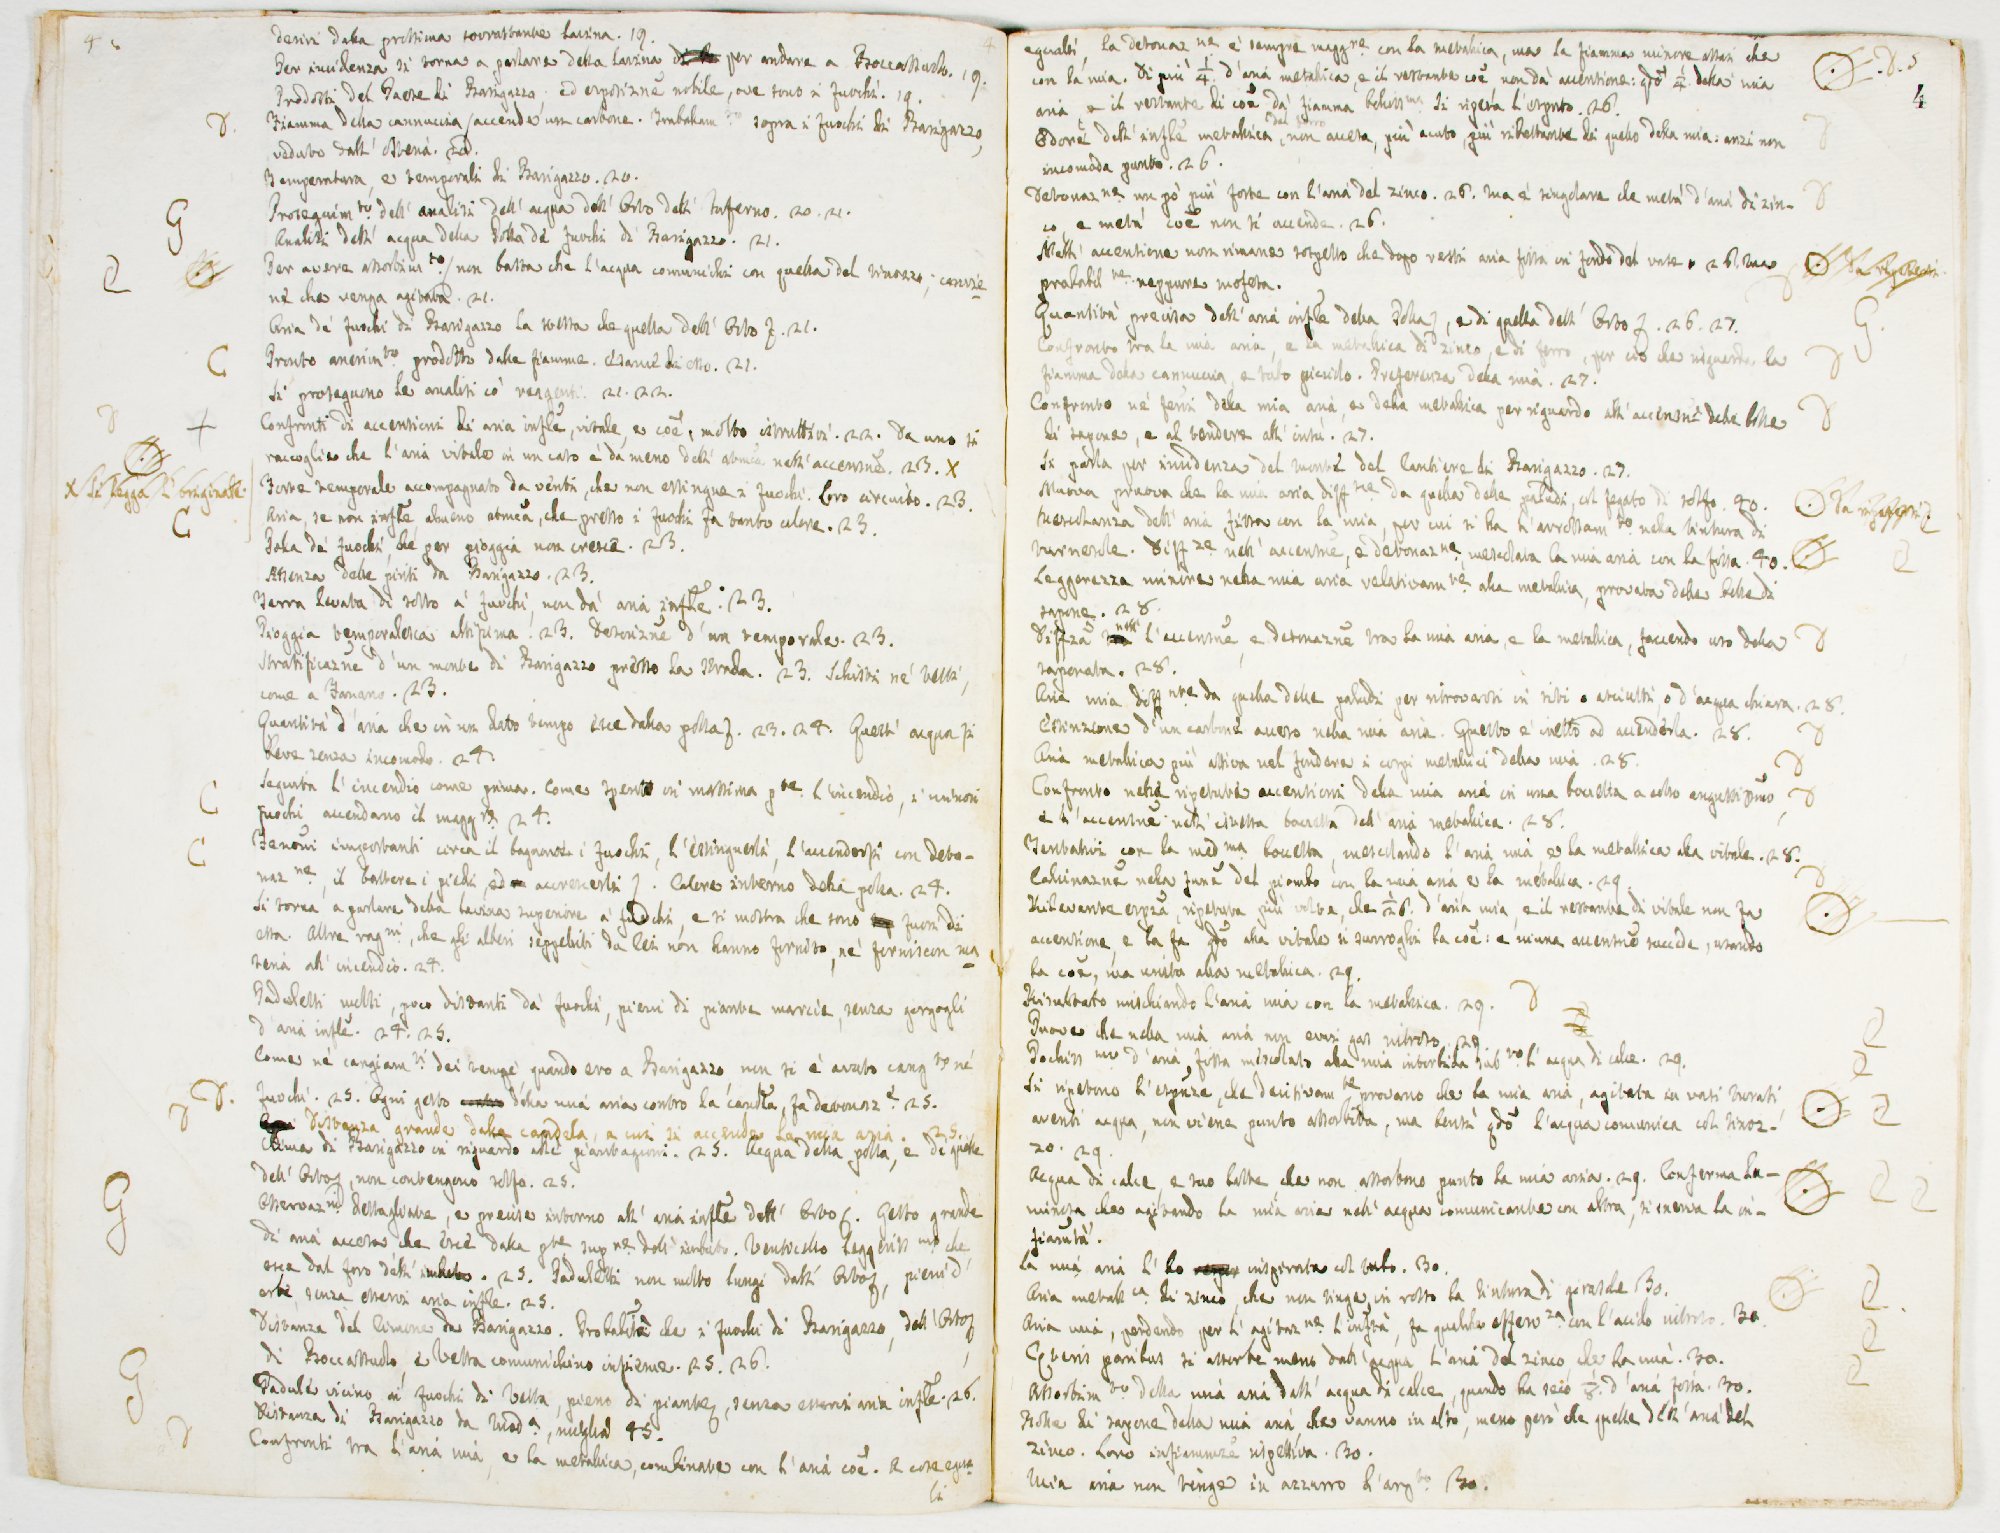 derivi dalla prossima sovrastante lavina. 19.
Per incidenza si torna a parlare della lavina per andare a Boccassuolo. 19.
Prodotti del Paese di Barigazzo, ed espoſizne nobile, ove sono i fuochi. 19.
Fiamma della cannuccia accende un carbone. sopra i fuochi di Barigazzo,
veduto dall'
Temperatura, e temporali di Barigazzo. 20.
Proseguimto dell'analisi dell'acqua dell'Orto dell'Inferno. 20. 21.
Analisi dell'acqua della Polla de' fuochi di Barigazzo. 21.
Per avere assorbimto, non basta che l'acqua comunichi con quella del tinozzo; convie=
ne che venga agitata. 21.
Aria de' fuochi di Barigazzo la stessa che quella dell'Orto f. 21.
Pronto anerimto prodotto dalle fiamme. Esame di esso. 21.
Si proseguono le analisi co' reagenti. 21. 22.
Confronti di accensioni di aria infle, vitale, e coe, molto istruttivi. 22. Da uno si
raccoglie che l'aria vitale in un caso è da meno dell' nell'accensne. 23. X
X Si legga l'originale
Forte temporale accompagnato da venti, che non estingue i fuochi. Loro circuito. 23.
Aria, se non infle almeno, che presso i fuochi fa tanto calore. 23.
Polla de' fuochi, che per pioggia non cresce. 23.
Assenza delle piriti da Barigazzo. 23.
Terra levata di sotto a' fuochi, non dà aria infle. 23.
Pioggia temporalesca altissima. 23. Descrizne d'un temporale. 23.
Stratificazne d'un monte di Barigazzo presso la strada. 23. Schisti ne' Vetta,
come a Fanano. 23.
Quantità d'aria che in un dato tempo esce dalla polla f. 23. 24. Quest'acqua si
beve senza incomodo. 24.
Seguita l'incendio come prima. Come spento in massima pte l'incendio, i minori
fuochi accendano il maggre. 24.
Fenomi importanti circa il bagnarsi i fuochi, l'estinguerli, l'accendersi con deto-
nazne, il battere i piedi, ed accrescerli f. Calore interno della polla. 24.
Si torna a parlare della lavina superiore a' fuochi, e si mostra che sono fuori di
essa. Altre ragni, che gli alberi seppelliti da lei non hanno fornito, né forniscon ma
teria all'incendio. 24.
Paduletti molti, poco distanti da' fuochi, pieni di piante marcie, senza gorgogli
d'aria infle. 24. 25.
Come ne' cangiamti dei tempi quando ero a Barigazzo non si è avuto cangto ne'
fuochi. 25. Ogni getto della mia aria contro la candela, fa detonaze. 25.
Distanza grande dalla candela, a cui si accende la mia aria. 25.
Clima di Barigazzo in riguardo alle piantagioni. 25. Acqua della polla, e di quella
dell'Orto f, non contengono solfo. 25.
Osservazni dettagliate, e precise intorno all'aria infle dell'Orto f. Getto grande
di aria accesa che esce dalla pte supne dell'imbuto. Venticello leggerissmo che
esce dal foro dell'imbuto. 25. Paduletti non molto lungi dall'Orto f, pieni d'
erbe, senza esservi aria infle. 25.
Distanza del Cimone da Barigazzo. Probabiltà che i fuochi di Barigazzo, dell'Orto f
di Boccassuolo, e Vetta comunichino insieme. 25. 26.
Padule vicino ai fuochi di Vetta, pieno di piante, senza esservi aria infle. 26.
Distanza di Barigazzo da Moda, miglia 45.
Confronti tra l'aria mia, e la metallica, combinate con l'aria coe. A cose egua
li
4
eguali, la detonazne è sempre maggre con la metallica, ma la fiamma minore assai che
con la mia. Di più 1/4 d'aria metallica, e il restante coe non dà accensione: qdo 1/4 della mia
aria, e il restante di coe dà fiamma bellissma. Si ripeta l'esprto. 26.
Odore dell'infle metallica del ferro, non accesa, più acuto, più ributtante di quello della mia: anzi non
incomoda punto. 26.
Detonazne un pò più forte con l'aria del zinco. 26. ma è singolare che metà d'aria di zin-
co, e metà coe non si accende. 26.
Nell'accensione non rimane sospetto che dopo resti aria fissa in fondo del vase. 26. ma
probabilte neppure mofeta.
Quantità precisa dell'aria infle della Polla f, e di quella dell'Orto f. 26. 27.
Confronto tra la mia aria, e la metallica di zinco, e di ferro, per ciò che riguarda la
fiamma della cannuccia, e tubo piccolo. Preferenza della mia. 27.
Confronto ne' fenni della mia aria, e della metallica per riguardo all'accensne delle bolle
di sapone, e al tendere all'insù. 27.
Si parla per incidenza del monte del Cantiere di Barigazzo. 27.
Nuova pruova che la mia aria diffre da quella delle paludi, col fegato di solfo. 40.
Mescolanza dell'aria fissa con la mia, per cui si ha l'arrossamto nella tintura di
turnesole. Diffze nell'accensne, e detonazne, mescolata la mia aria con la fissa. 40.
Leggerezza minore nella mia aria relativamte alla metallica, provata dalle bolle di
sapone. 28.
Diffza nell'accensne, e detonazne tra la mia aria, e la metallica, facendo uso della
saponata. 28.
Aria mia diffnte da quella delle paludi per ritrovarsi in siti o asciutti, o d'acqua chiara. 28.
Estinzione d'un carbone acceso nella mia aria. Questo è inetto ad accenderla. 28.
Aria metallica più attiva nel fondere i corpi metallici della mia. 28.
Confronto nelle ripetute accensioni della mia aria in una boccetta a collo angustissimo,
e l'accensne nell'istessa boccetta dell'aria metallica. 28.
Tentativi con la medma boccetta, mescolando l'aria mia e la metallica alla vitale. 28.
Calcinazne nella fune del piombo con la mia aria e la metallica. 29.
Rilevante espza, ripetuta più volte, che 1/26 d'aria mia, e il restante di vitale non fa
accensione, e la fa qdo alla vitale si surroghi la coe: e niuna accensne succede, usando
la coe, ma unita alla metallica. 29.
Risultato mischiando l'aria mia con la metallica. 29.
Prove che nella mia aria non evvi gas nitroso. 29.
Pochissmo d'aria fissa mescolato alla mia intorbida subto l'acqua di calce. 29.
Si ripetono l'espnze, che decisivamte provano che la mia aria, agitata in vasi turati
aventi acqua, non viene punto assorbita, ma bensì qdo l'acqua comunica col tinoz-
zo. 29.
Acqua di calce e suo latte che non assorbono punto la mia aria. 29. Conferma lu-
minosa che agitando la mia aria nell'acqua comunicante con altra, si snerva la in-
fiamtà.
La mia aria l'ho inspirata col tubo. 30.
Aria metallca di zinco, che non tinge in rosso la tintura di girasole 30.
Aria mia, perdendo per l'agitazne l'inftà, fa qualche effervza con l'acido nitroso. 30.
Cæteris paribus si assorbe meno dall'acqua l'aria del zinco che la mia. 30.
Assorbimto della mia aria dall'acqua di calce, quando ha seco 1/2 d'aria fissa. 30.
Bolle di sapone della mia aria, che vanno in alto, meno però che quelle dell'aria del
zinco. Loro infiammze rispettiva. 30.
Mia aria non tinge in azzurro l'argto 30.